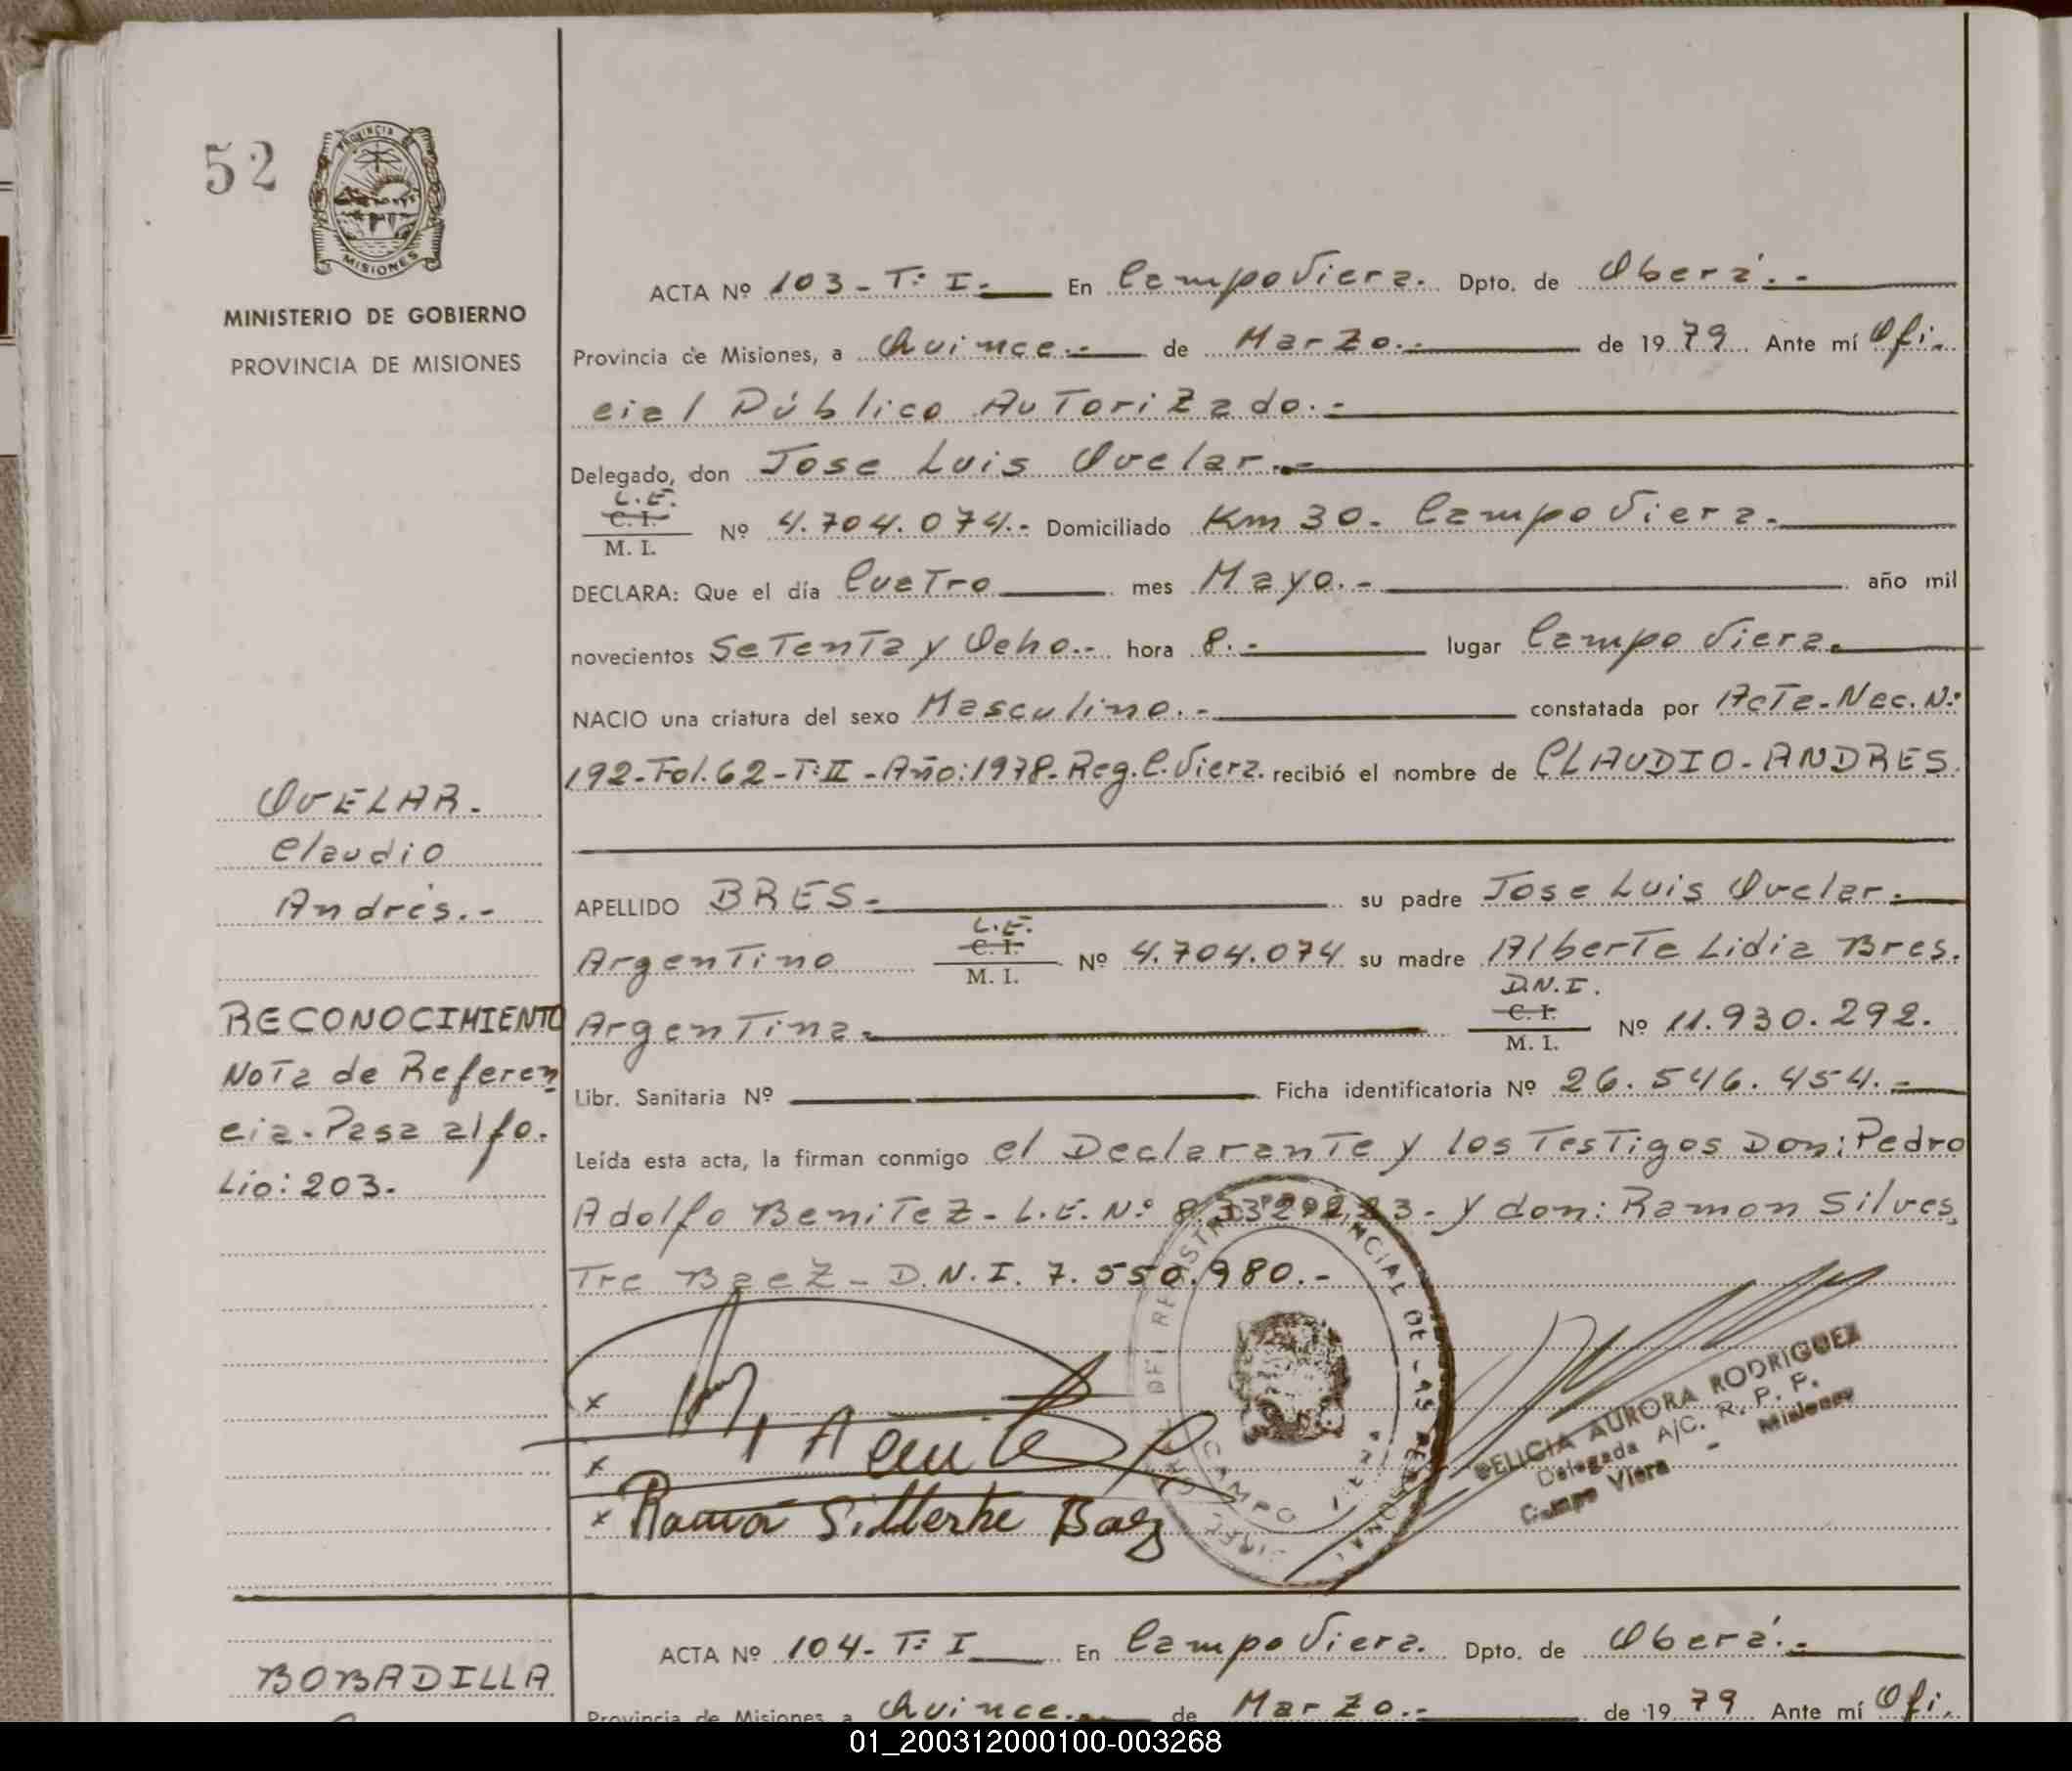 52
PROVINCIA
MISIONES
MINISTERIO DE GOBIERNO
PROVINCIA DE MISIONES
ACTA Nº 103-T:I.- En Campo Viera. Dpto. de Oberá.-
Provincia de Misiones, a Quince.- de Marzo.- de 1979 Ante mí Ofi-
cial Público Autorizado.-
Delegado, don Jose Luis Ovelar.-
L.E.
C. I.
M. I.
Nº 4.704.074.- Domiciliado Km 30. Campo Viera.-
DECLARA: Que el día Cuatro mes Mayo.- año mil
novecientos Setenta y Ocho.- hora 8.- lugar Campo Viera.
NACIO una criatura del sexo Masculino.- constatada por Acta-Nac.Nº
192-Fol.62-T:II-Año:1978-Reg.C.Viera. recibió el nombre de CLAUDIO-ANDRES.
OVELAR.-
Claudio
Andrés.-
APELLIDO BRES.- su padre Jose Luis Ovelar.-
Argentino
L.E.
C. I.
M. I.
Nº 4.704.074 su madre Alberta Lidia Bres.
RECONOCIMIENTO
Argentina.
D.N.I.
C. I.
M. I.
Nº 11.930.292.
Nota de Referen
cia. Pasa al fo.
lio: 203.
Libr. Sanitaria Nº Ficha identificatoria Nº 26.546.454.-
Leída esta acta, la firman conmigo el Declarante y los Testigos Don: Pedro
Adolfo Benitez - L.E. Nº y don: Ramon Silves
tre Baez - D.N.I. 7.550.980.-
x
x
x Ramon Silvestre Baez
CAMPO
DELICIA AURORA RODRIGUEZ
Delegada A/C. R. P. P.
Campo Viera - Misiones
BOBADILLA
ACTA Nº 104-T:I En Campo Viera. Dpto. de Oberá.-
Provincia de Misiones a Quince.- de Marzo.- de 1979 Ante mí Ofi.
01_200312000100-003268